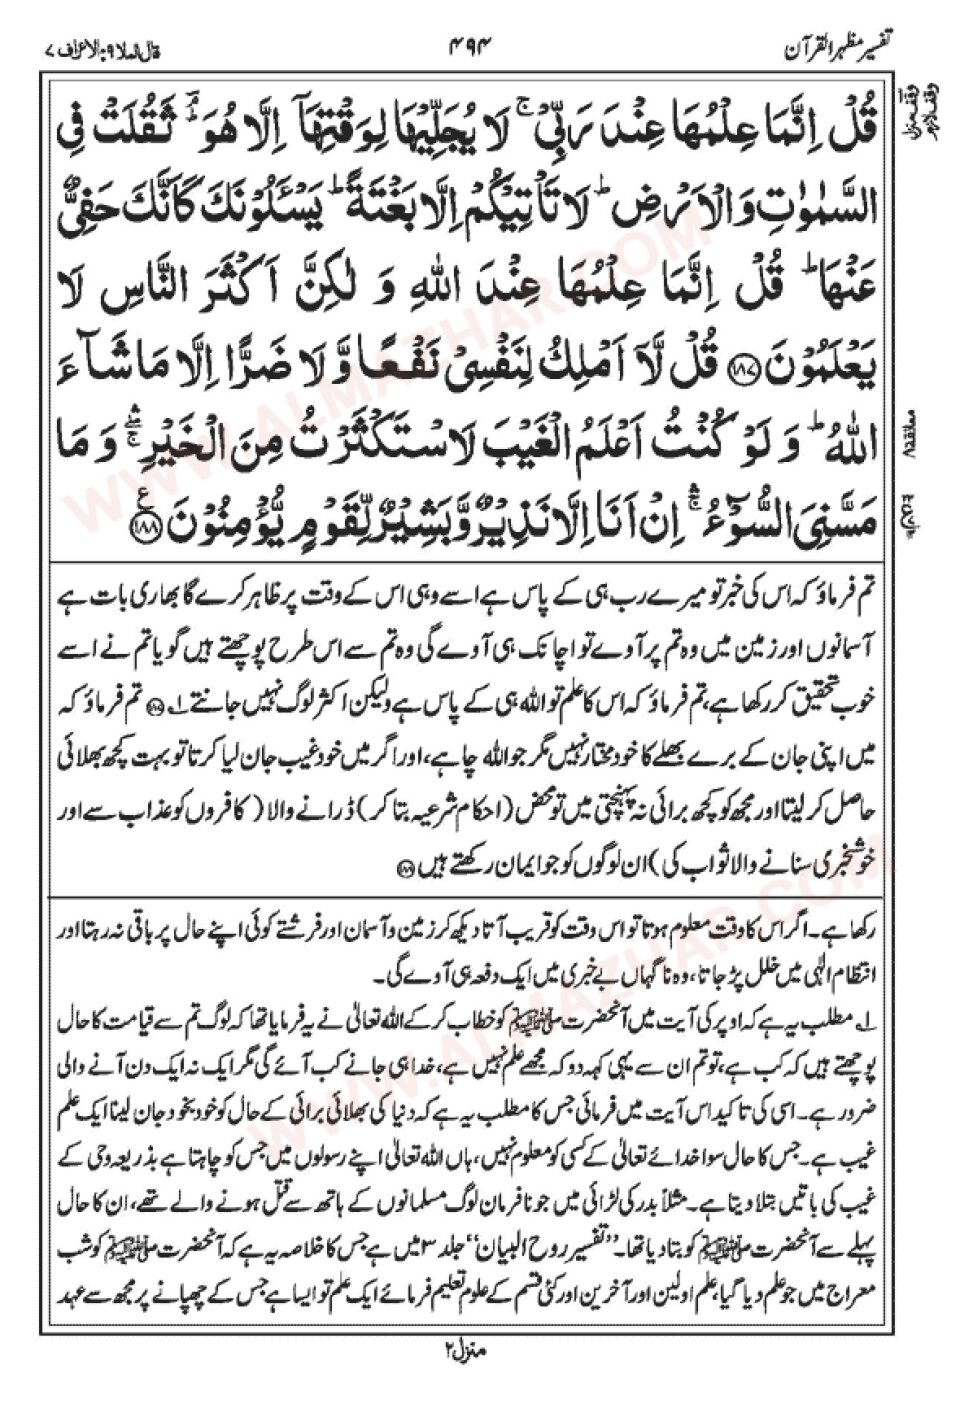 تفسیر مظہر القرآن ۴۹۴ قال الملا ۹ : الاعراف ۷
قُلْ اِنَّمَا عِلْمُهَا عِنْدَ رَبِّیْ ۚ لَا یُجَلِّیْهَا لِوَقْتِهَاۤ اِلَّا هُوَ ؕۘ ثَقُلَتْ فِی
السَّمٰوٰتِ وَالْاَرْضِ ؕ لَا تَاْتِیْكُمْ اِلَّا بَغْتَةً ؕ یَسْـَٔلُوْنَكَ كَاَنَّكَ حَفِیٌّ
عَنْهَا ؕ قُلْ اِنَّمَا عِلْمُهَا عِنْدَ اللّٰهِ وَ لٰكِنَّ اَكْثَرَ النَّاسِ لَا
یَعْلَمُوْنَ ﴿۱۸۷﴾ قُلْ لَّاۤ اَمْلِكُ لِنَفْسِیْ نَفْعًا وَّ لَا ضَرًّا اِلَّا مَا شَآءَ
اللّٰهُ ؕ وَ لَوْ كُنْتُ اَعْلَمُ الْغَیْبَ لَاسْتَكْثَرْتُ مِنَ الْخَیْرِ ۛۚ وَ مَا
مَسَّنِیَ السُّوْٓءُ ۛۚ اِنْ اَنَا اِلَّا نَذِیْرٌ وَّ بَشِیْرٌ لِّقَوْمٍ یُّؤْمِنُوْنَ ﴿۱۸۸﴾ ع
تم فرماؤ کہ اس کی خبر تو میرے رب ہی کے پاس ہے اسے وہی اس کے وقت پر ظاہر کرے گا بھاری بات ہے
آسمانوں اور زمین میں وہ تم پر آوے تو اچانک ہی آوے گی وہ تم سے اس طرح پوچھتے ہیں گویا تم نے اسے
خوب تحقیق کر رکھا ہے، تم فرماؤ کہ اس کا علم تو اللہ ہی کے پاس ہے ولیکن اکثر لوگ نہیں جانتے ۱؎ ﴿۱۸۷﴾ تم فرماؤ کہ
میں اپنی جان کے برے بھلے کا خود مختار نہیں مگر جو اللہ چاہے، اور اگر میں خود غیب جان لیا کرتا تو بہت کچھ بھلائی
حاصل کر لیتا اور مجھ کو کچھ برائی نہ پہنچتی میں تو محض (احکام شرعیہ بتا کر) ڈرانے والا (کافروں کو عذاب سے اور
خوشخبری سنانے والا ثواب کی) ان لوگوں کو جو ایمان رکھتے ہیں ﴿۱۸۸﴾
رکھا ہے۔ اگر اس کا وقت معلوم ہوتا تو اس وقت کو قریب آتا دیکھ کر زمین و آسمان اور فرشتے کوئی اپنے حال پر باقی نہ رہتا اور
انتظام الٰہی میں خلل پڑ جاتا، وہ ناگہاں بے خبری میں ایک دفعہ ہی آوے گی۔
۱؎ مطلب یہ ہے کہ اوپر کی آیت میں آنحضرت ﷺ کو خطاب کر کے اللہ تعالیٰ نے یہ فرمایا تھا کہ لوگ تم سے قیامت کا حال
پوچھتے ہیں کہ کب ہے، تو تم ان سے یہی کہہ دو کہ مجھے علم نہیں ہے، خدا ہی جانے کب آئے گی مگر ایک نہ ایک دن آنے والی
ضرور ہے۔ اسی کی تاکید اس آیت میں فرمائی جس کا مطلب یہ ہے کہ دنیا کی بھلائی برائی کے حال کو خود بخود جان لینا ایک علم
غیب ہے۔ جس کا حال سوا خدائے تعالیٰ کے کسی کو معلوم نہیں، ہاں اللہ تعالیٰ اپنے رسولوں میں جس کو چاہتا ہے بذریعہ وحی کے
غیب کی باتیں بتلا دیتا ہے۔ مثلاً بدر کی لڑائی میں جو نافرمان لوگ مسلمانوں کے ہاتھ سے قتل ہونے والے تھے، ان کا حال
پہلے سے آنحضرت ﷺ کو بتا دیا تھا۔ ”تفسیر روح البیان“ جلد ۳ میں ہے جس کا خلاصہ یہ ہے کہ آنحضرت ﷺ کو شب
معراج میں جو علم دیا گیا، علم اولین اور آخرین اور کئی قسم کے علوم تعلیم فرمائے ایک علم تو ایسا ہے جس کے چھپانے پر مجھ سے عہد
منزل ۲
WWW.ALMAZHAR.COM
WWW.ALMAZHAR.COM